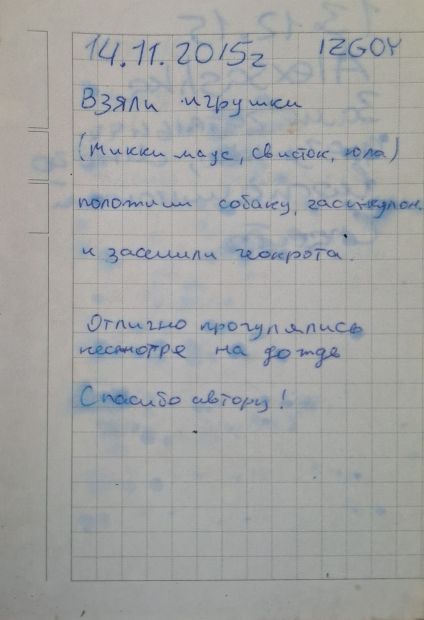 14.11.2015г IZGOY
Взяли игрушки
(Микки маус, свисток, юла)
положили собаку,
и заселили геокрота.
Отлично прогулялись
несмотря на дожде
Спасибо автору!